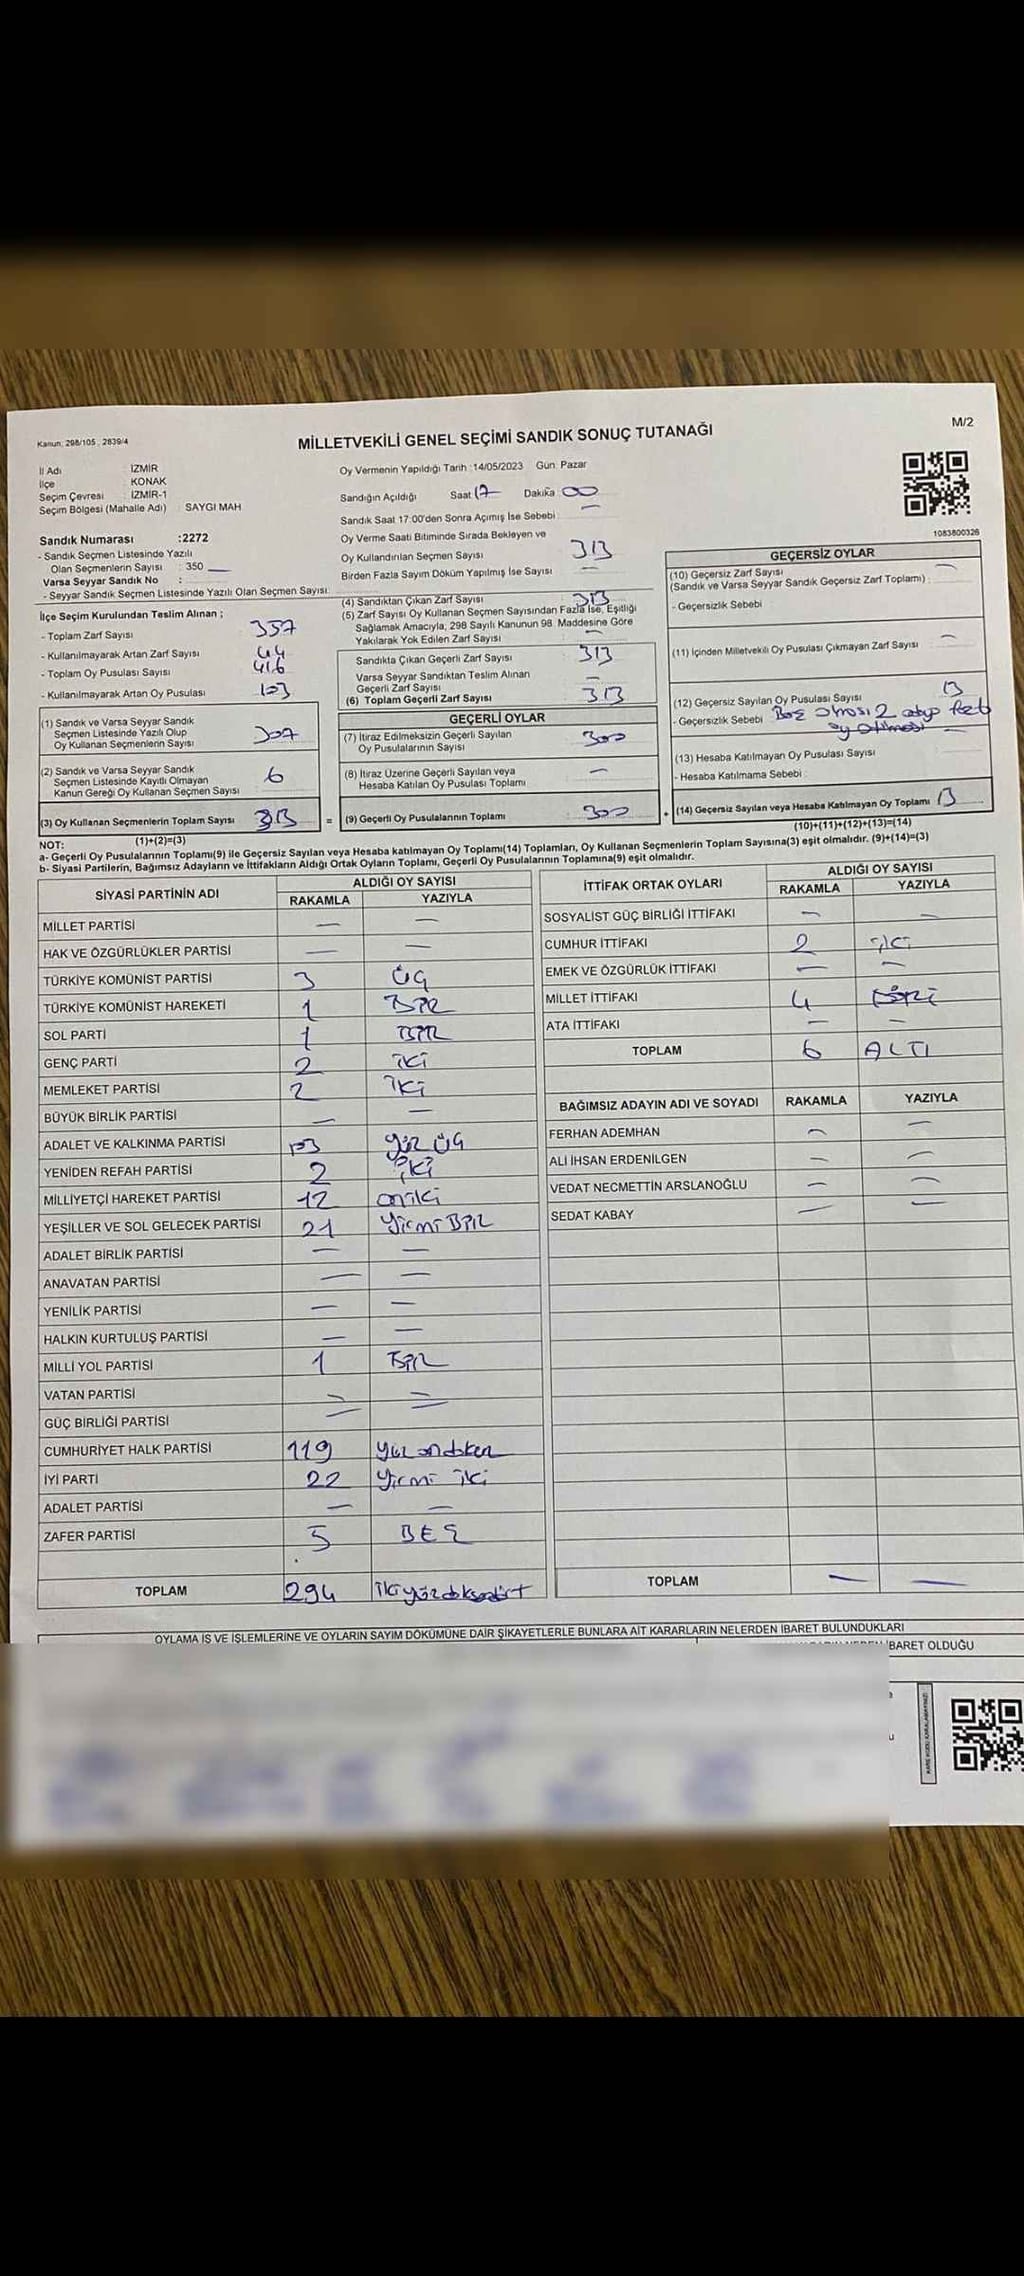 Kanun: 298/105 , 2839/4
MİLLETVEKİLİ GENEL SEÇİMİ SANDIK SONUÇ TUTANAĞI
M/2
İl Adı : İZMİR
İlçe : KONAK
Seçim Çevresi : İZMİR-1
Seçim Bölgesi (Mahalle Adı) : SAYGI MAH
Sandık Numarası :2272
- Sandık Seçmen Listesinde Yazılı
Olan Seçmenlerin Sayısı : 350 —
Varsa Seyyar Sandık No :
- Seyyar Sandık Seçmen Listesinde Yazılı Olan Seçmen Sayısı:
Oy Vermenin Yapıldığı Tarih :14/05/2023 Gün: Pazar
Sandığın Açıldığı Saat 17 Dakika 00
Sandık Saat 17:00'den Sonra Açımış İse Sebebi : —
Oy Verme Saati Bitiminde Sırada Bekleyen ve
Oy Kullandırılan Seçmen Sayısı 313
Birden Fazla Sayım Döküm Yapılmış İse Sayısı —
1083800326
İlçe Seçim Kurulundan Teslim Alınan ;
- Toplam Zarf Sayısı 357
- Kullanılmayarak Artan Zarf Sayısı 44
- Toplam Oy Pusulası Sayısı 416
- Kullanılmayarak Artan Oy Pusulası 103
(1) Sandık ve Varsa Seyyar Sandık
Seçmen Listesinde Yazılı Olup
Oy Kullanan Seçmenlerin Sayısı 307
(2) Sandık ve Varsa Seyyar Sandık
Seçmen Listesinde Kayıtlı Olmayan
Kanun Gereği Oy Kullanan Seçmen Sayısı 6
(3) Oy Kullanan Seçmenlerin Toplam Sayısı 313
=
(4) Sandıktan Çıkan Zarf Sayısı : 313
(5) Zarf Sayısı Oy Kullanan Seçmen Sayısından Fazla İse, Eşitliği
Sağlamak Amacıyla, 298 Sayılı Kanunun 98. Maddesine Göre
Yakılarak Yok Edilen Zarf Sayısı : —
Sandıkta Çıkan Geçerli Zarf Sayısı 313
Varsa Seyyar Sandıktan Teslim Alınan
Geçerli Zarf Sayısı —
(6) Toplam Geçerli Zarf Sayısı 313
GEÇERLİ OYLAR
(7) İtiraz Edilmeksizin Geçerli Sayılan
Oy Pusulalarının Sayısı 300
(8) İtiraz Üzerine Geçerli Sayılan veya
Hesaba Katılan Oy Pusulası Toplamı —
(9) Geçerli Oy Pusulalarının Toplamı 300
+
GEÇERSİZ OYLAR
(10) Geçersiz Zarf Sayısı —
(Sandık ve Varsa Seyyar Sandık Geçersiz Zarf Toplamı) :
- Geçersizlik Sebebi
(11) İçinden Milletvekili Oy Pusulası Çıkmayan Zarf Sayısı —
(12) Geçersiz Sayılan Oy Pusulası Sayısı 13
- Geçersizlik Sebebi Boş olması 2
(13) Hesaba Katılmayan Oy Pusulası Sayısı —
- Hesaba Katılmama Sebebi :
(14) Geçersiz Sayılan veya Hesaba Katılmayan Oy Toplamı 13
NOT: (1)+(2)=(3) (10)+(11)+(12)+(13)=(14)
a- Geçerli Oy Pusulalarının Toplamı(9) ile Geçersiz Sayılan veya Hesaba katılmayan Oy Toplamı(14) Toplamları, Oy Kullanan Seçmenlerin Toplam Sayısına(3) eşit olmalıdır. (9)+(14)=(3)
b- Siyasi Partilerin, Bağımsız Adayların ve İttifakların Aldığı Ortak Oyların Toplamı, Geçerli Oy Pusulalarının Toplamına(9) eşit olmalıdır.
SİYASİ PARTİNİN ADI ALDIĞI OY SAYISI
RAKAMLA YAZIYLA
MİLLET PARTİSİ — —
HAK VE ÖZGÜRLÜKLER PARTİSİ — —
TÜRKİYE KOMÜNİST PARTİSİ 3 ÜÇ
TÜRKİYE KOMÜNİST HAREKETİ 1 BİR
SOL PARTİ 1 BİR
GENÇ PARTİ 2 iki
MEMLEKET PARTİSİ 2 iki
BÜYÜK BİRLİK PARTİSİ — —
ADALET VE KALKINMA PARTİSİ 103 yüz üç
YENİDEN REFAH PARTİSİ 2 iki
MİLLİYETÇİ HAREKET PARTİSİ 12 oniki
YEŞİLLER VE SOL GELECEK PARTİSİ 21 Yirmi BİR
ADALET BİRLİK PARTİSİ — —
ANAVATAN PARTİSİ — —
YENİLİK PARTİSİ — —
HALKIN KURTULUŞ PARTİSİ — —
MİLLİ YOL PARTİSİ 1 BİR
VATAN PARTİSİ — —
GÜÇ BİRLİĞİ PARTİSİ — —
CUMHURİYET HALK PARTİSİ 119 yüz ondokuz
İYİ PARTİ 22 yirmi iki
ADALET PARTİSİ — —
ZAFER PARTİSİ 5 BEŞ
TOPLAM 294 ikiyüzdoksandört
İTTİFAK ORTAK OYLARI ALDIĞI OY SAYISI
RAKAMLA YAZIYLA
SOSYALİST GÜÇ BİRLİĞİ İTTİFAKI — —
CUMHUR İTTİFAKI 2 iki
EMEK VE ÖZGÜRLÜK İTTİFAKI — —
MİLLET İTTİFAKI 4 DÖRT
ATA İTTİFAKI — —
TOPLAM 6 ALTI
BAĞIMSIZ ADAYIN ADI VE SOYADI RAKAMLA YAZIYLA
FERHAN ADEMHAN — —
ALİ İHSAN ERDENİLGEN — —
VEDAT NECMETTİN ARSLANOĞLU — —
SEDAT KABAY — —
TOPLAM — —
OYLAMA İŞ VE İŞLEMLERİNE VE OYLARIN SAYIM DÖKÜMÜNE DAİR ŞİKAYETLERLE BUNLARA AİT KARARLARIN NELERDEN İBARET BULUNDUKLARI
İBARET OLDUĞU